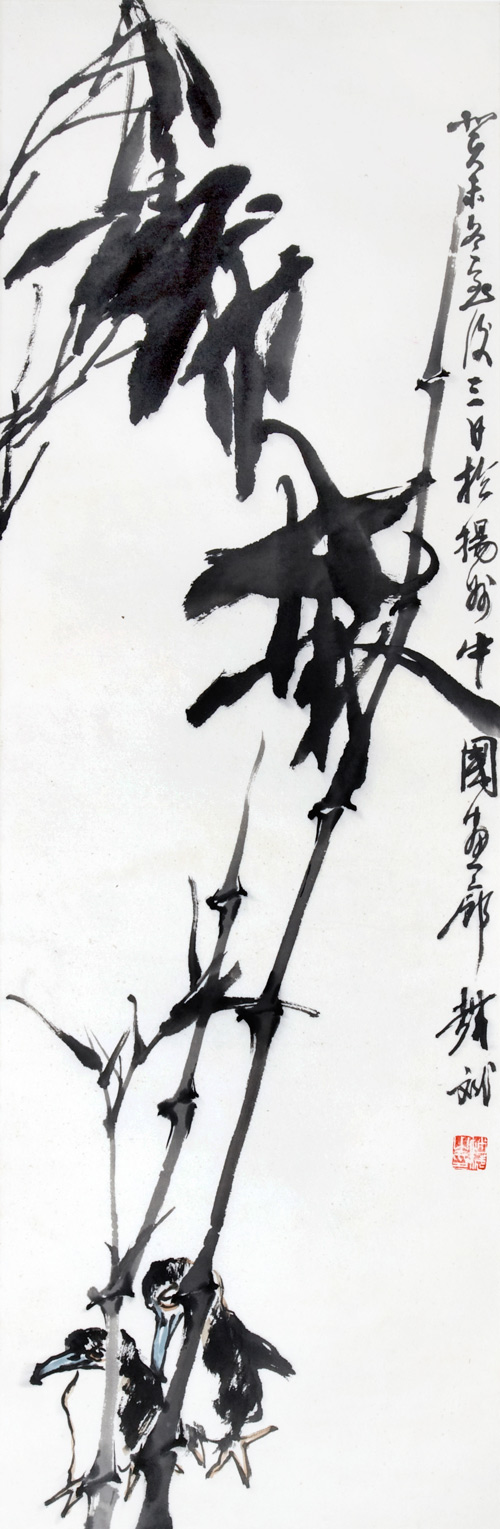 癸未冬至後三日於揚州中國畫廊